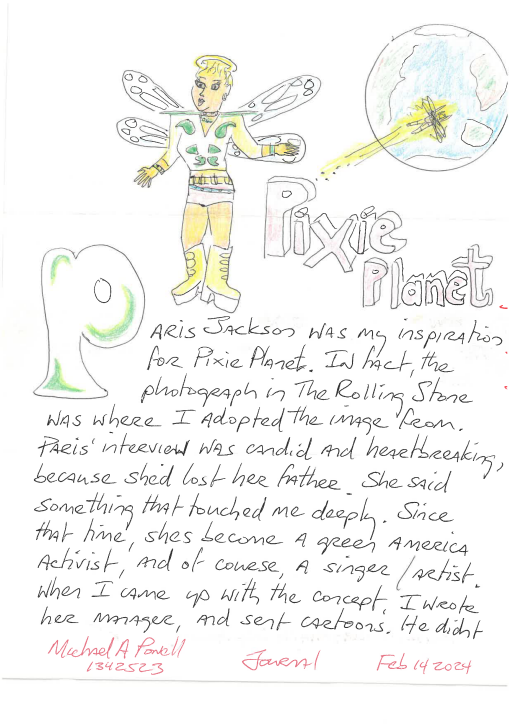 Pixie
Planet
PARIS JACKSON WAS my inspiration
for Pixie Planet. IN fact, the
photograph in The Rolling Stone
WAS where I Adopted the image from.
PARIS' interview WAS candid AND heartbreaking,
because she'd lost her father. She said
something that touched me deeply. Since
that time, shes become A green AMERICA
Activist, AND of course, A singer/ARTIST.
When I came up with the concept, I wrote
her MANAGER, AND sent CARTOONS. He didnt
Michael A Powell Journal Feb 14 2024
1342523